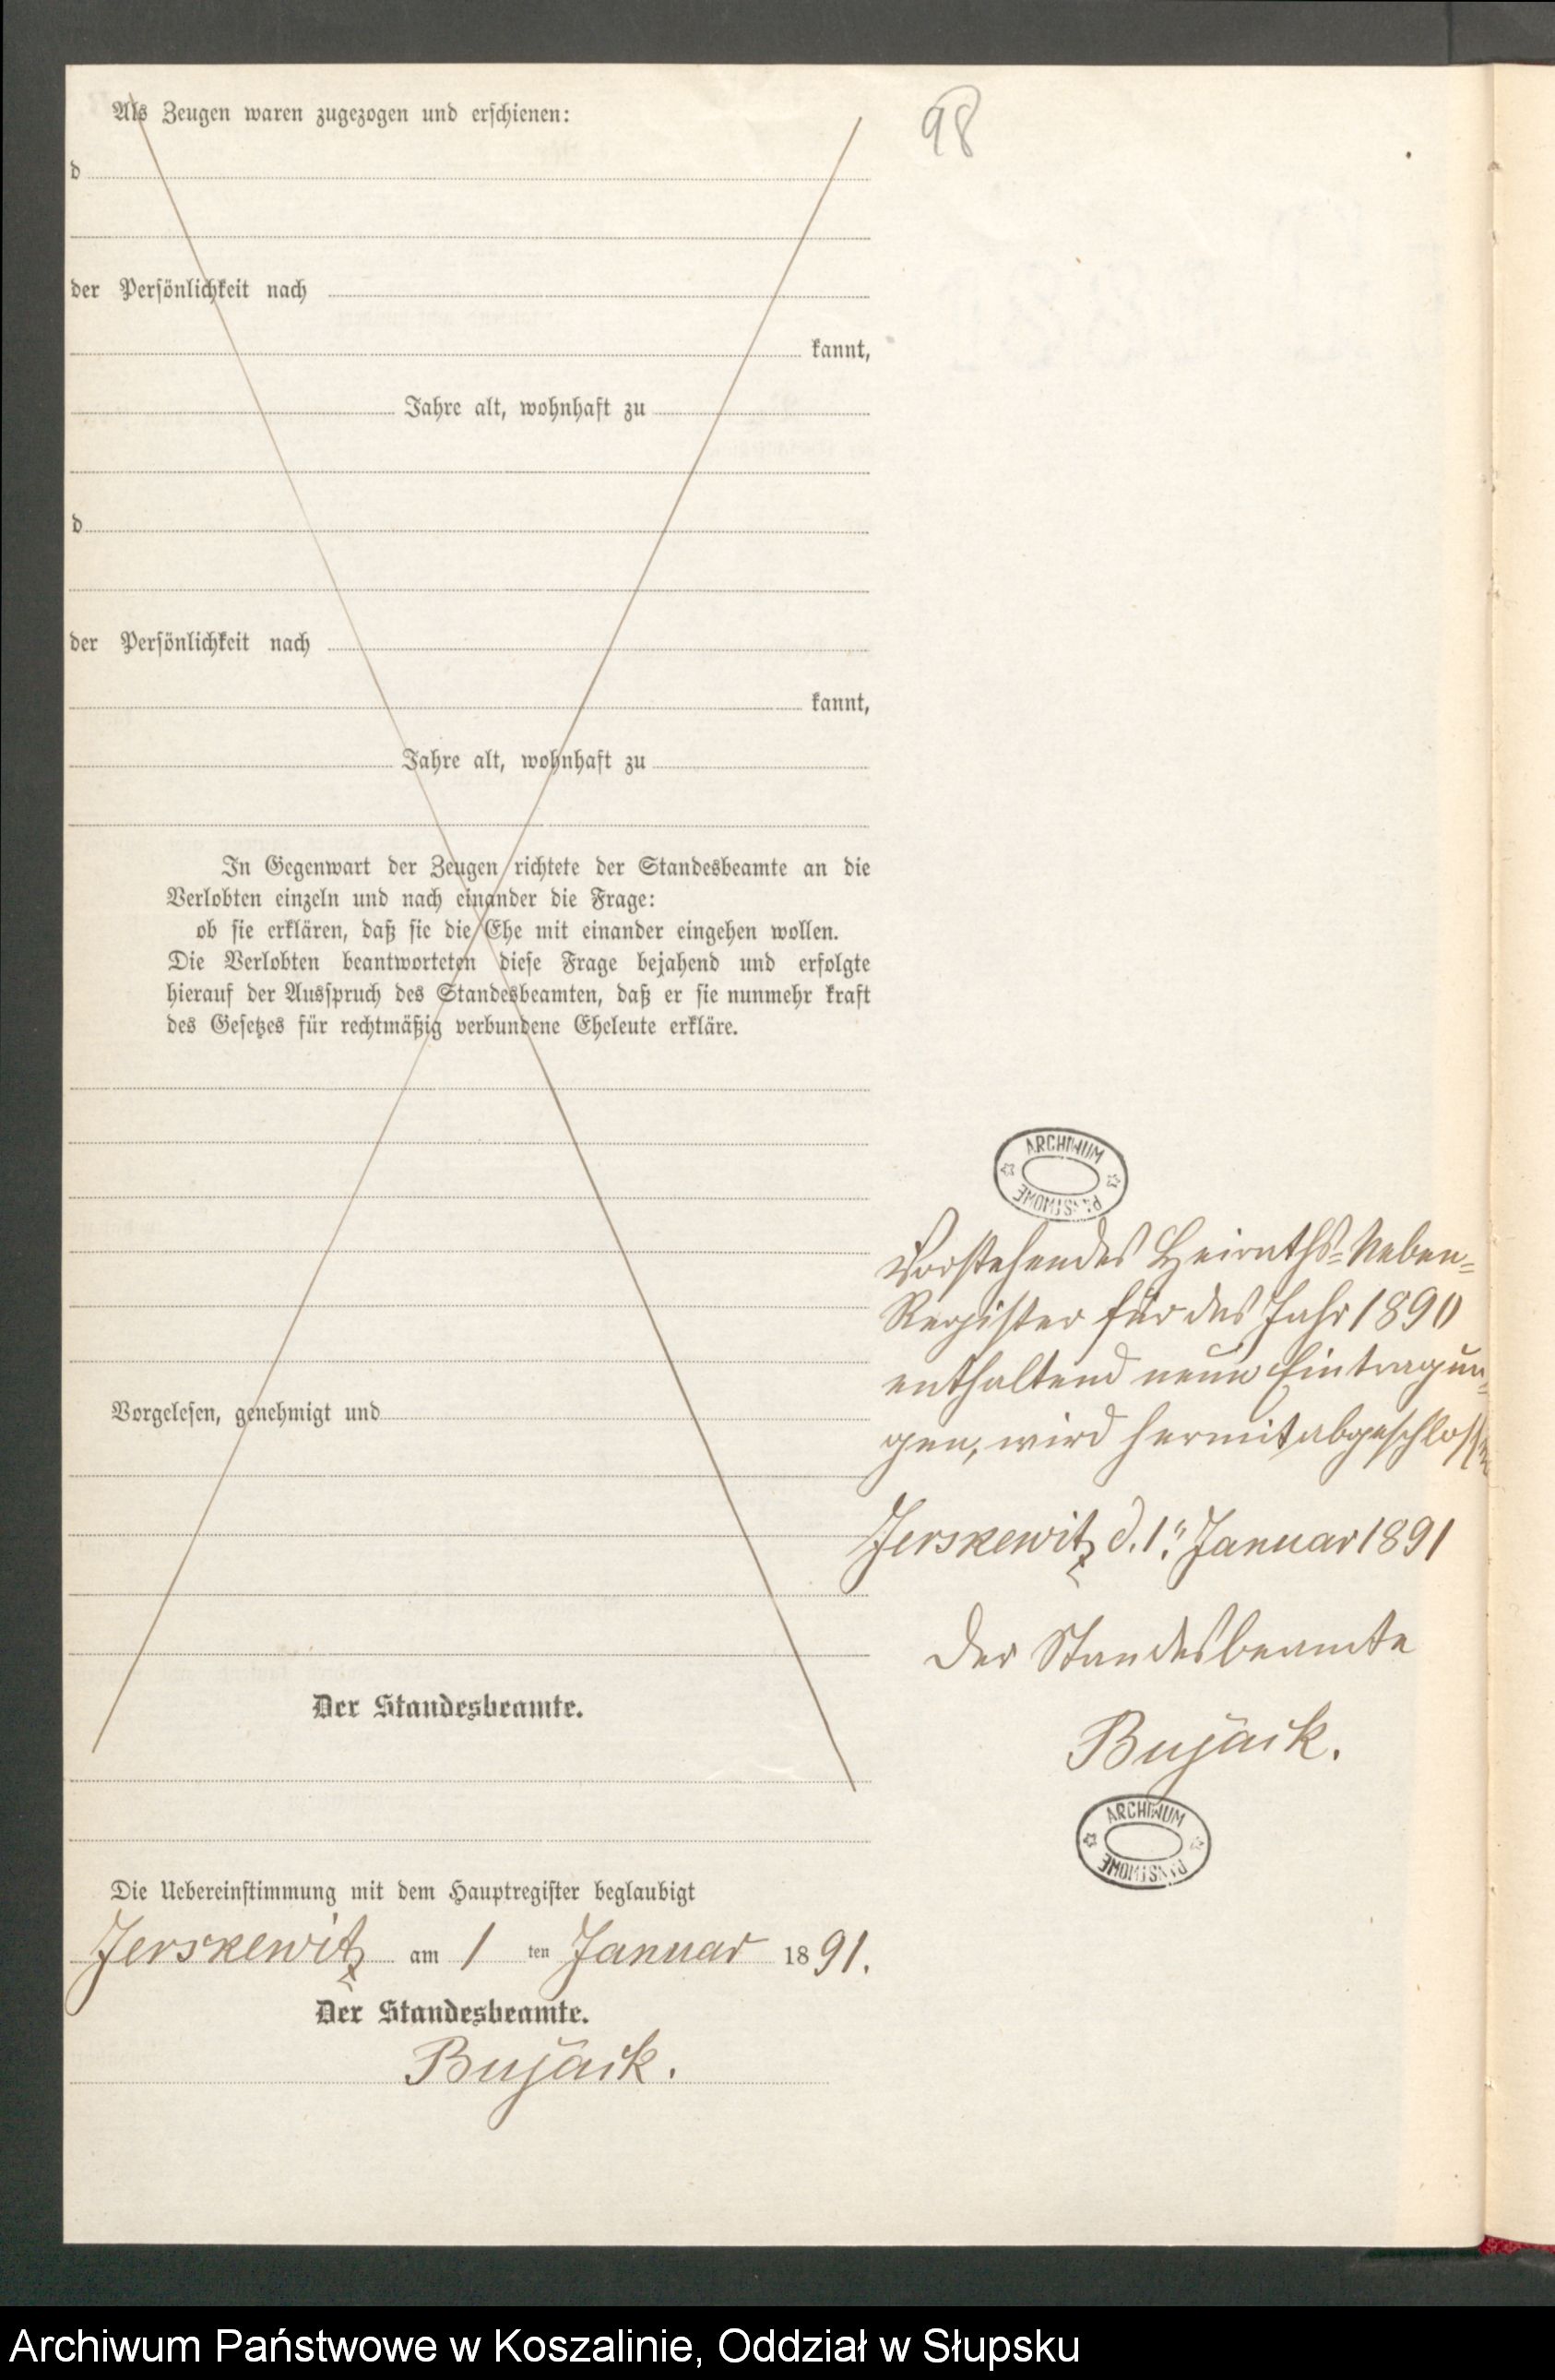 Als Zeugen waren zugezogen und erschienen:
98
d
der Persönlichkeit nach
kannt,
Jahre alt, wohnhaft zu
d
der Persönlichkeit nach
kannt,
Jahre alt, wohnhaft zu
In Gegenwart der Zeugen richtete der Standesbeamte an die
Verlobten einzeln und nach einander die Frage:
ob sie erklären, daß sie die Ehe mit einander eingehen wollen.
Die Verlobten beantworteten diese Frage bejahend und erfolgte
hierauf der Ausspruch des Standesbeamten, daß er sie nunmehr kraft
des Gesetzes für rechtmäßig verbundene Eheleute erkläre.
Vorgelesen, genehmigt und
Der Standesbeamte.
Die Uebereinstimmung mit dem Hauptregister beglaubigt
Jerskewitz am 1 ten Januar 1891.
Der Standesbeamte.
Bujack.
ARCHIWUM
PAŃSTWOWE
Vorstehendes Heiraths-Neben-
Register für das Jahr 1890
enthaltend neun Eintragun-
gen, wird hermit abgeschlossen
Jerskewitz d. 1. Januar 1891
Der Standesbeamte
Bujack.
ARCHIWUM
PAŃSTWOWE
Archiwum Państwowe w Koszalinie, Oddział w Słupsku